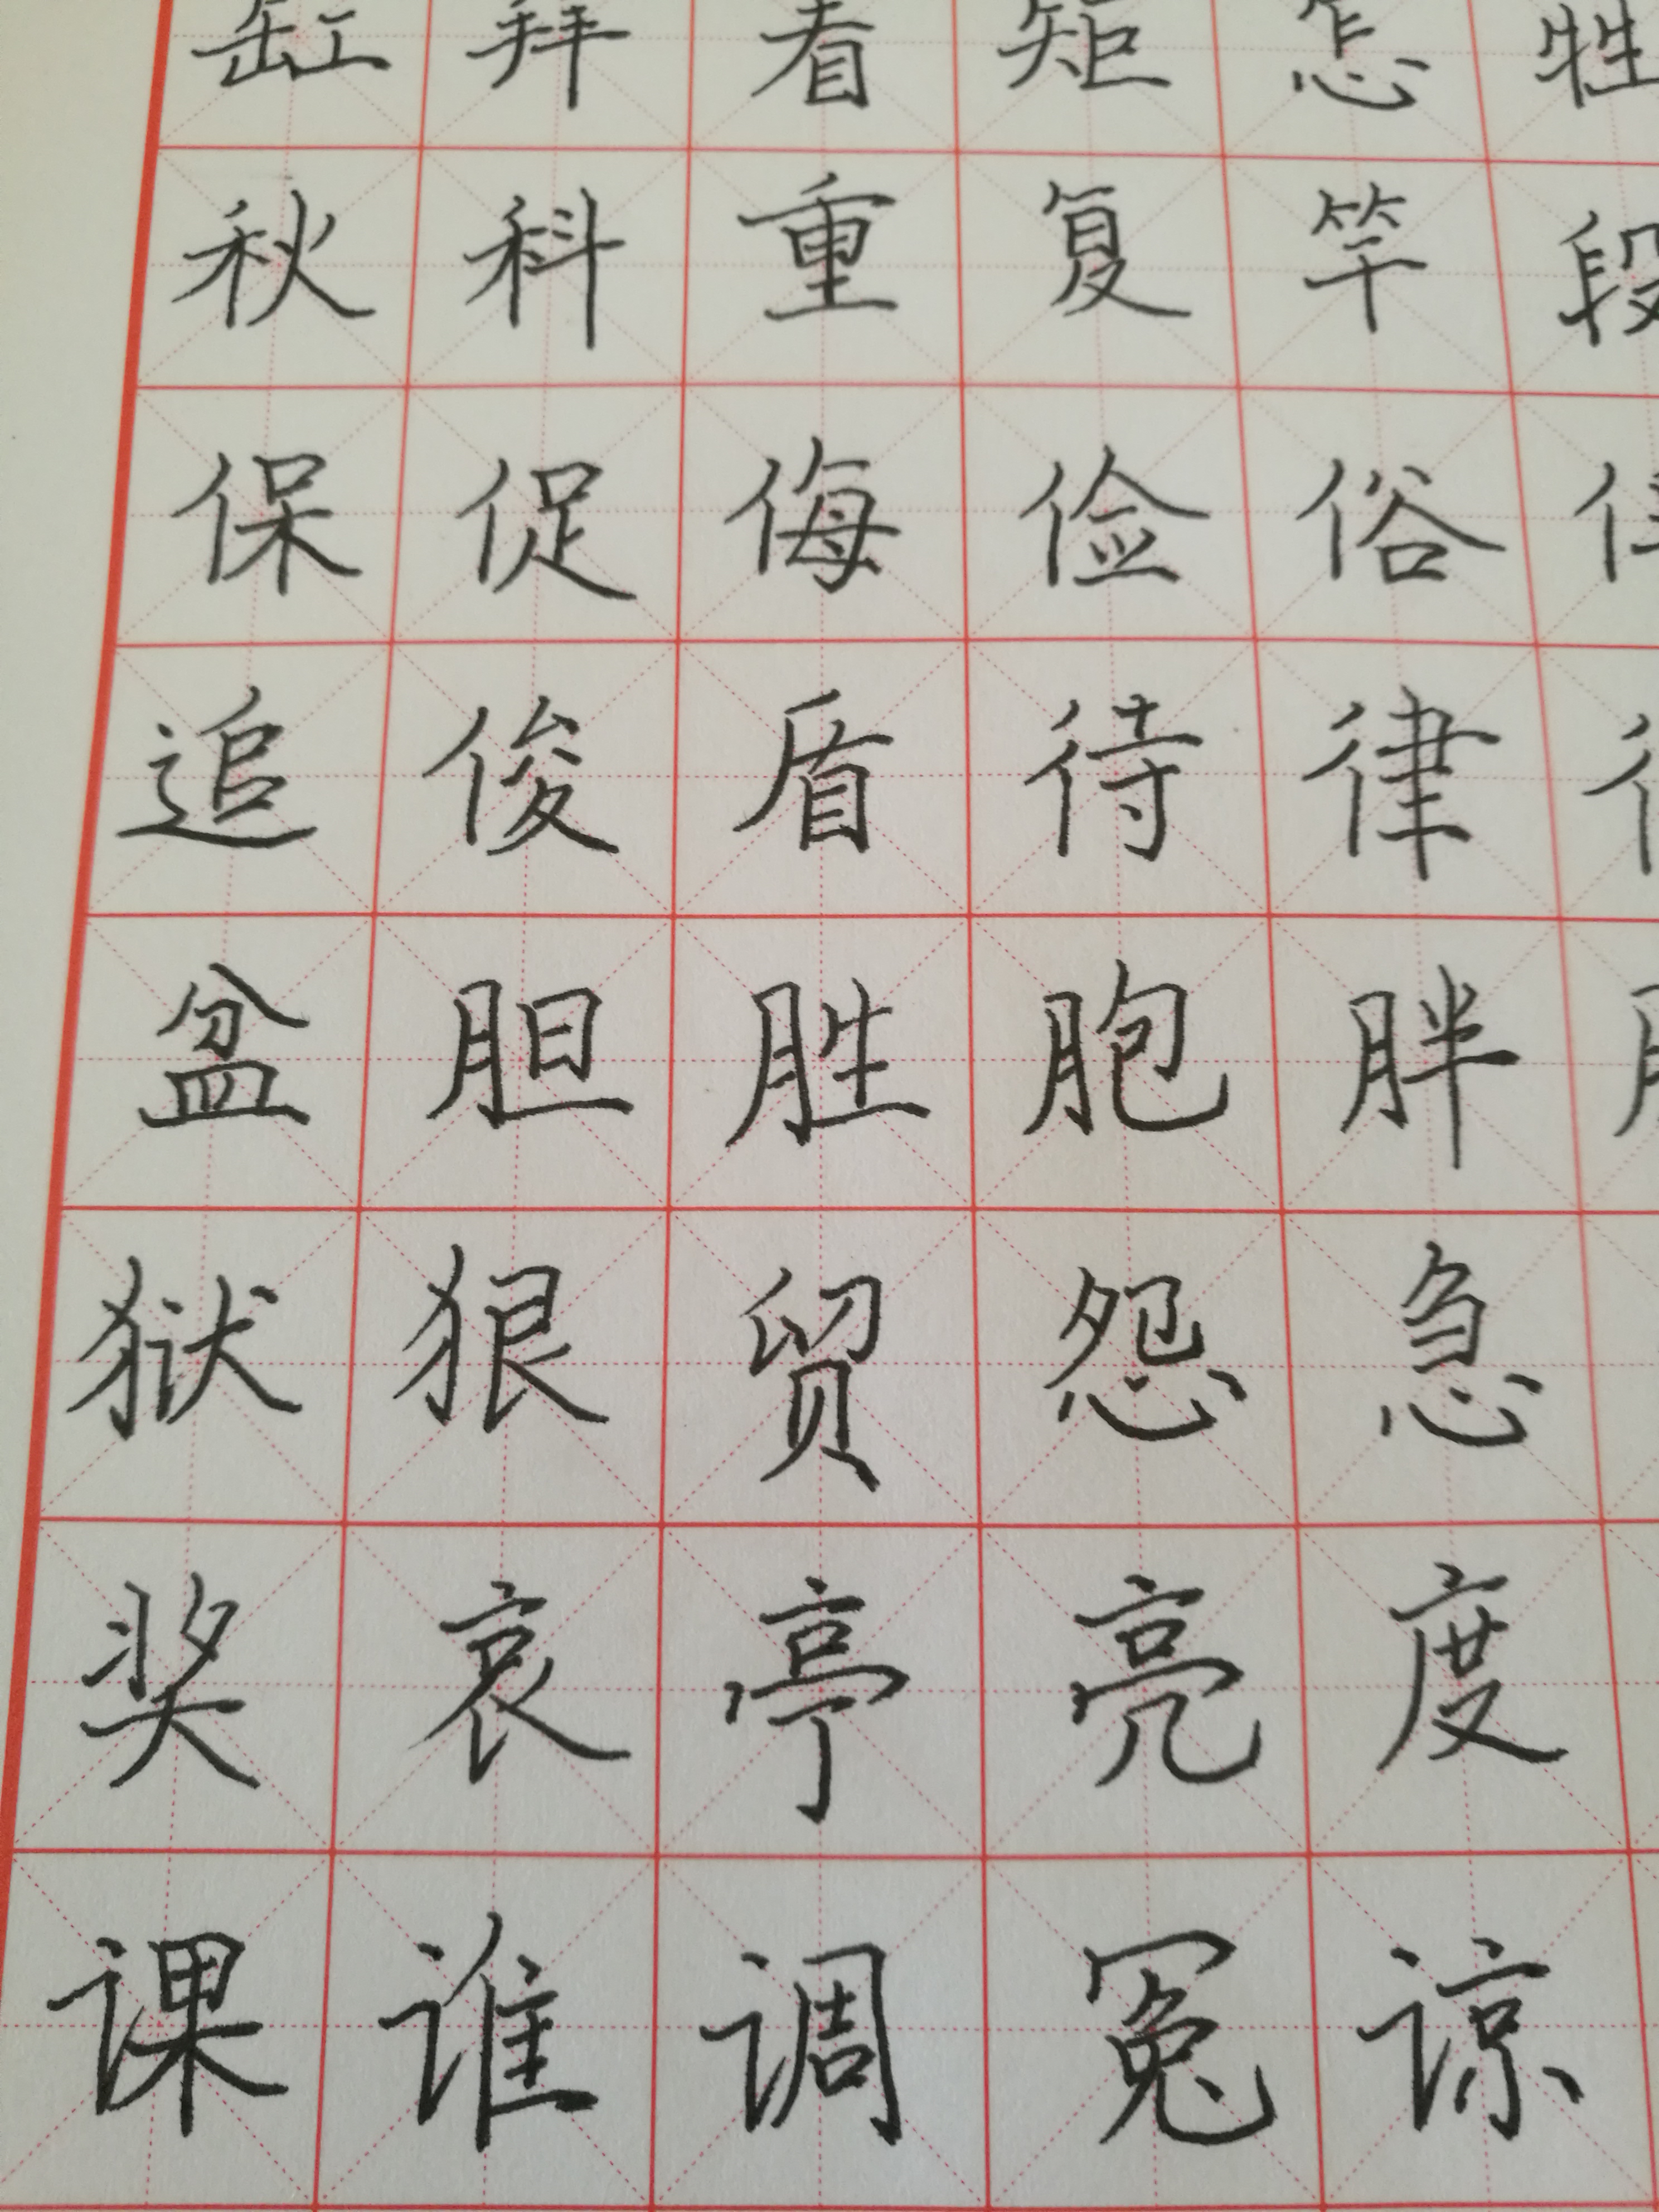 缸拜看矩怎牲
秋科重复竿段
保促侮俭俗
追俊盾待律
盆胆胜胞胖
狱狠贸怨急
奖哀亭亮度
课谁调冤谅